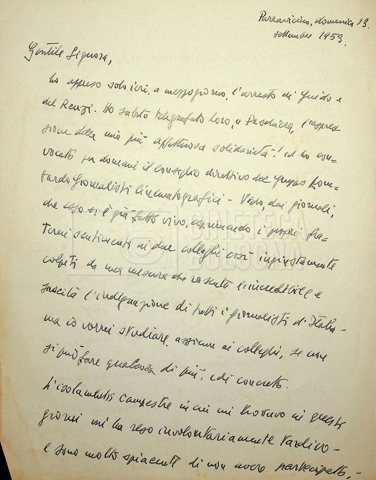 Parravicino, domenica 13
settembre 1953.
Gentile Signora,
ho appreso solo ieri, a mezzogiorno, l'arresto di Guido e
del Renzi. Ho subito telegrafato loro, a Peschiera, l'espres-
sione della mia più affettuosa solidarietà: ed ho con-
vocato per domani il consiglio direttivo del Gruppo Lom-
bardo Giornalisti Cinematografici - Vedo, dai giornali,
che esso si è già fatto vivo, esprimendo i propri fra-
terni sentimenti ai due colleghi così ingiustamente
colpiti da una misura che rasenta l'incredibile e
suscita l'indignazione di tutti i giornalisti d'Italia -
ma io vorrei studiare, assieme ai colleghi, se non
si può fare qualcosa di più, e di concreto.
L'isolamento campestre in cui mi trovavo in questi
giorni mi ha reso involontariamente tardivo -
e sono molto spiacente di non avere partecipato,
CINETECA
BOLOGNA